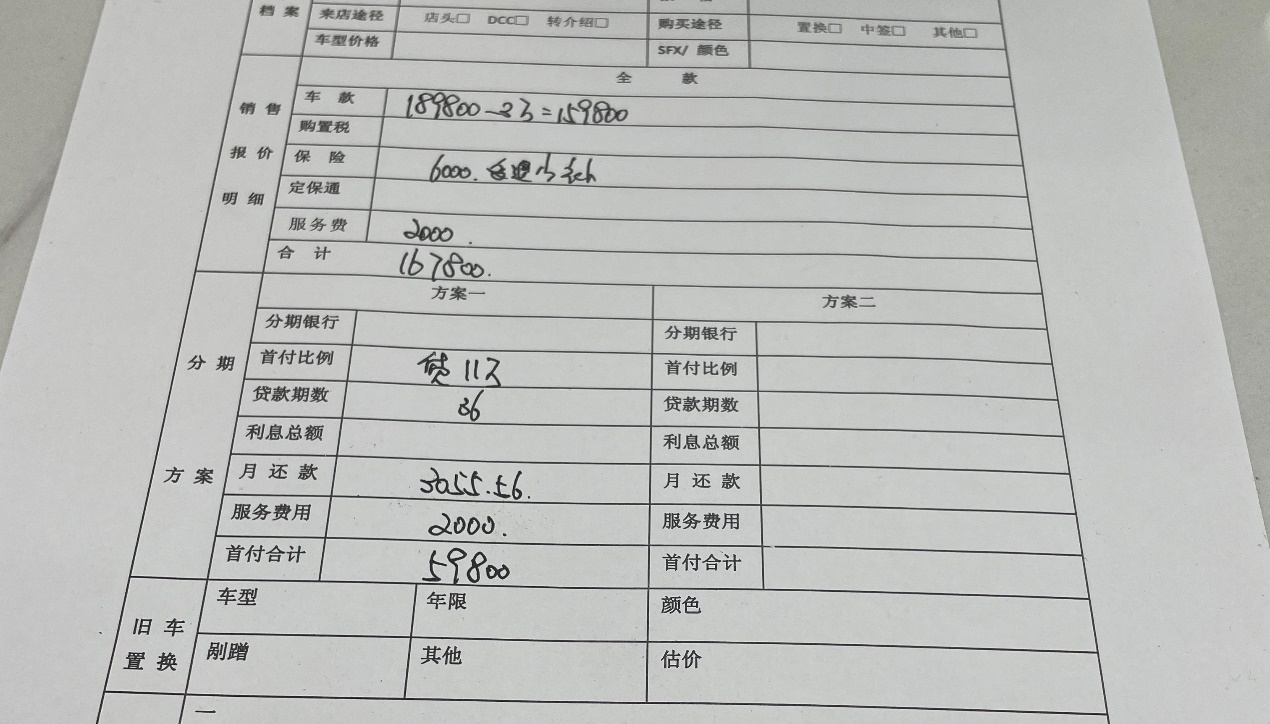 档案 来店途径 店头□ DCC□ 转介绍□ 购买途径 置换□ 中签□ 其他□
车型价格 SFX/ 颜色
销售报价明细 全 款
车 款 189800-3万=159800
购置税
保 险 6000.
定保通
服务费 2000.
合 计 167800.
分期方案 方案一 方案二
分期银行 分期银行
首付比例 贷11万 首付比例
贷款期数 36 贷款期数
利息总额 利息总额
月还款 3055.56. 月还款
服务费用 2000. 服务费用
首付合计 59800 首付合计
旧车置换 车型 年限 颜色
剐蹭 其他 估价
一